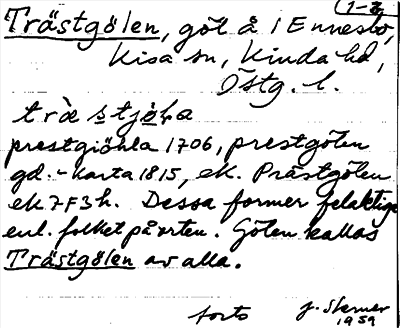 1-2
Trästgölen, göl å 1 Ennesbo,
Kisa sn, Kinda hd,
Östg. l.
prestgiöhla 1706, prestgölen
gd.-karta 1815, ek. Prästgölen
ek 7F3h. Dessa former felaktiga
enl. folket på orten. Gölen kallas
Trästgölen av alla.
forts
1959